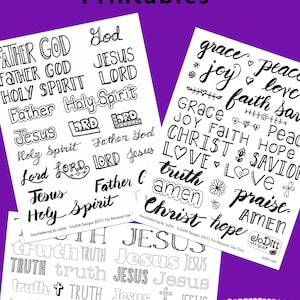 Printables
FATHER GOD
God
FATHER GOD
JESUS
HOLY SPIRIT
LORD
Father
Holy-Spirit
Jesus
LORD
Holy Spirit
Father God
Lord
LORD
Jesus
Jesus
Father
Holy Spirit
grace
peace
joy
love
faith
GRACE
JOY
FAITH
Peace
CHRIST
HOPE
LOVE
SAVIOR
LOVE
truth
praise
amen
AMEN
Christ
hope
JESUS
truth
TRUTH
JESUS
TRUTH
truth
JESUS
TRUTH